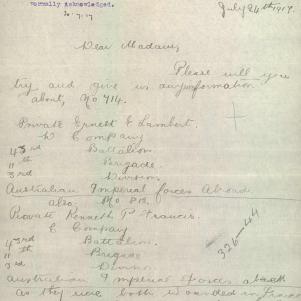 Formally Acknowledged.
July 24th 1917.
Dear Madam,
Please will you
try and give us any information
about, No 714.
Private Ernest E Lambert.
D Company
43rd Battalion.
11th Brigade.
3rd Division
Australian Imperial forces Abroad
also.
Private Kenneth P. Francis.
E Company
43rd Battalion.
11th Brigade
3rd Division
Australian Imperial Forces abroad
as they were both wounded in France